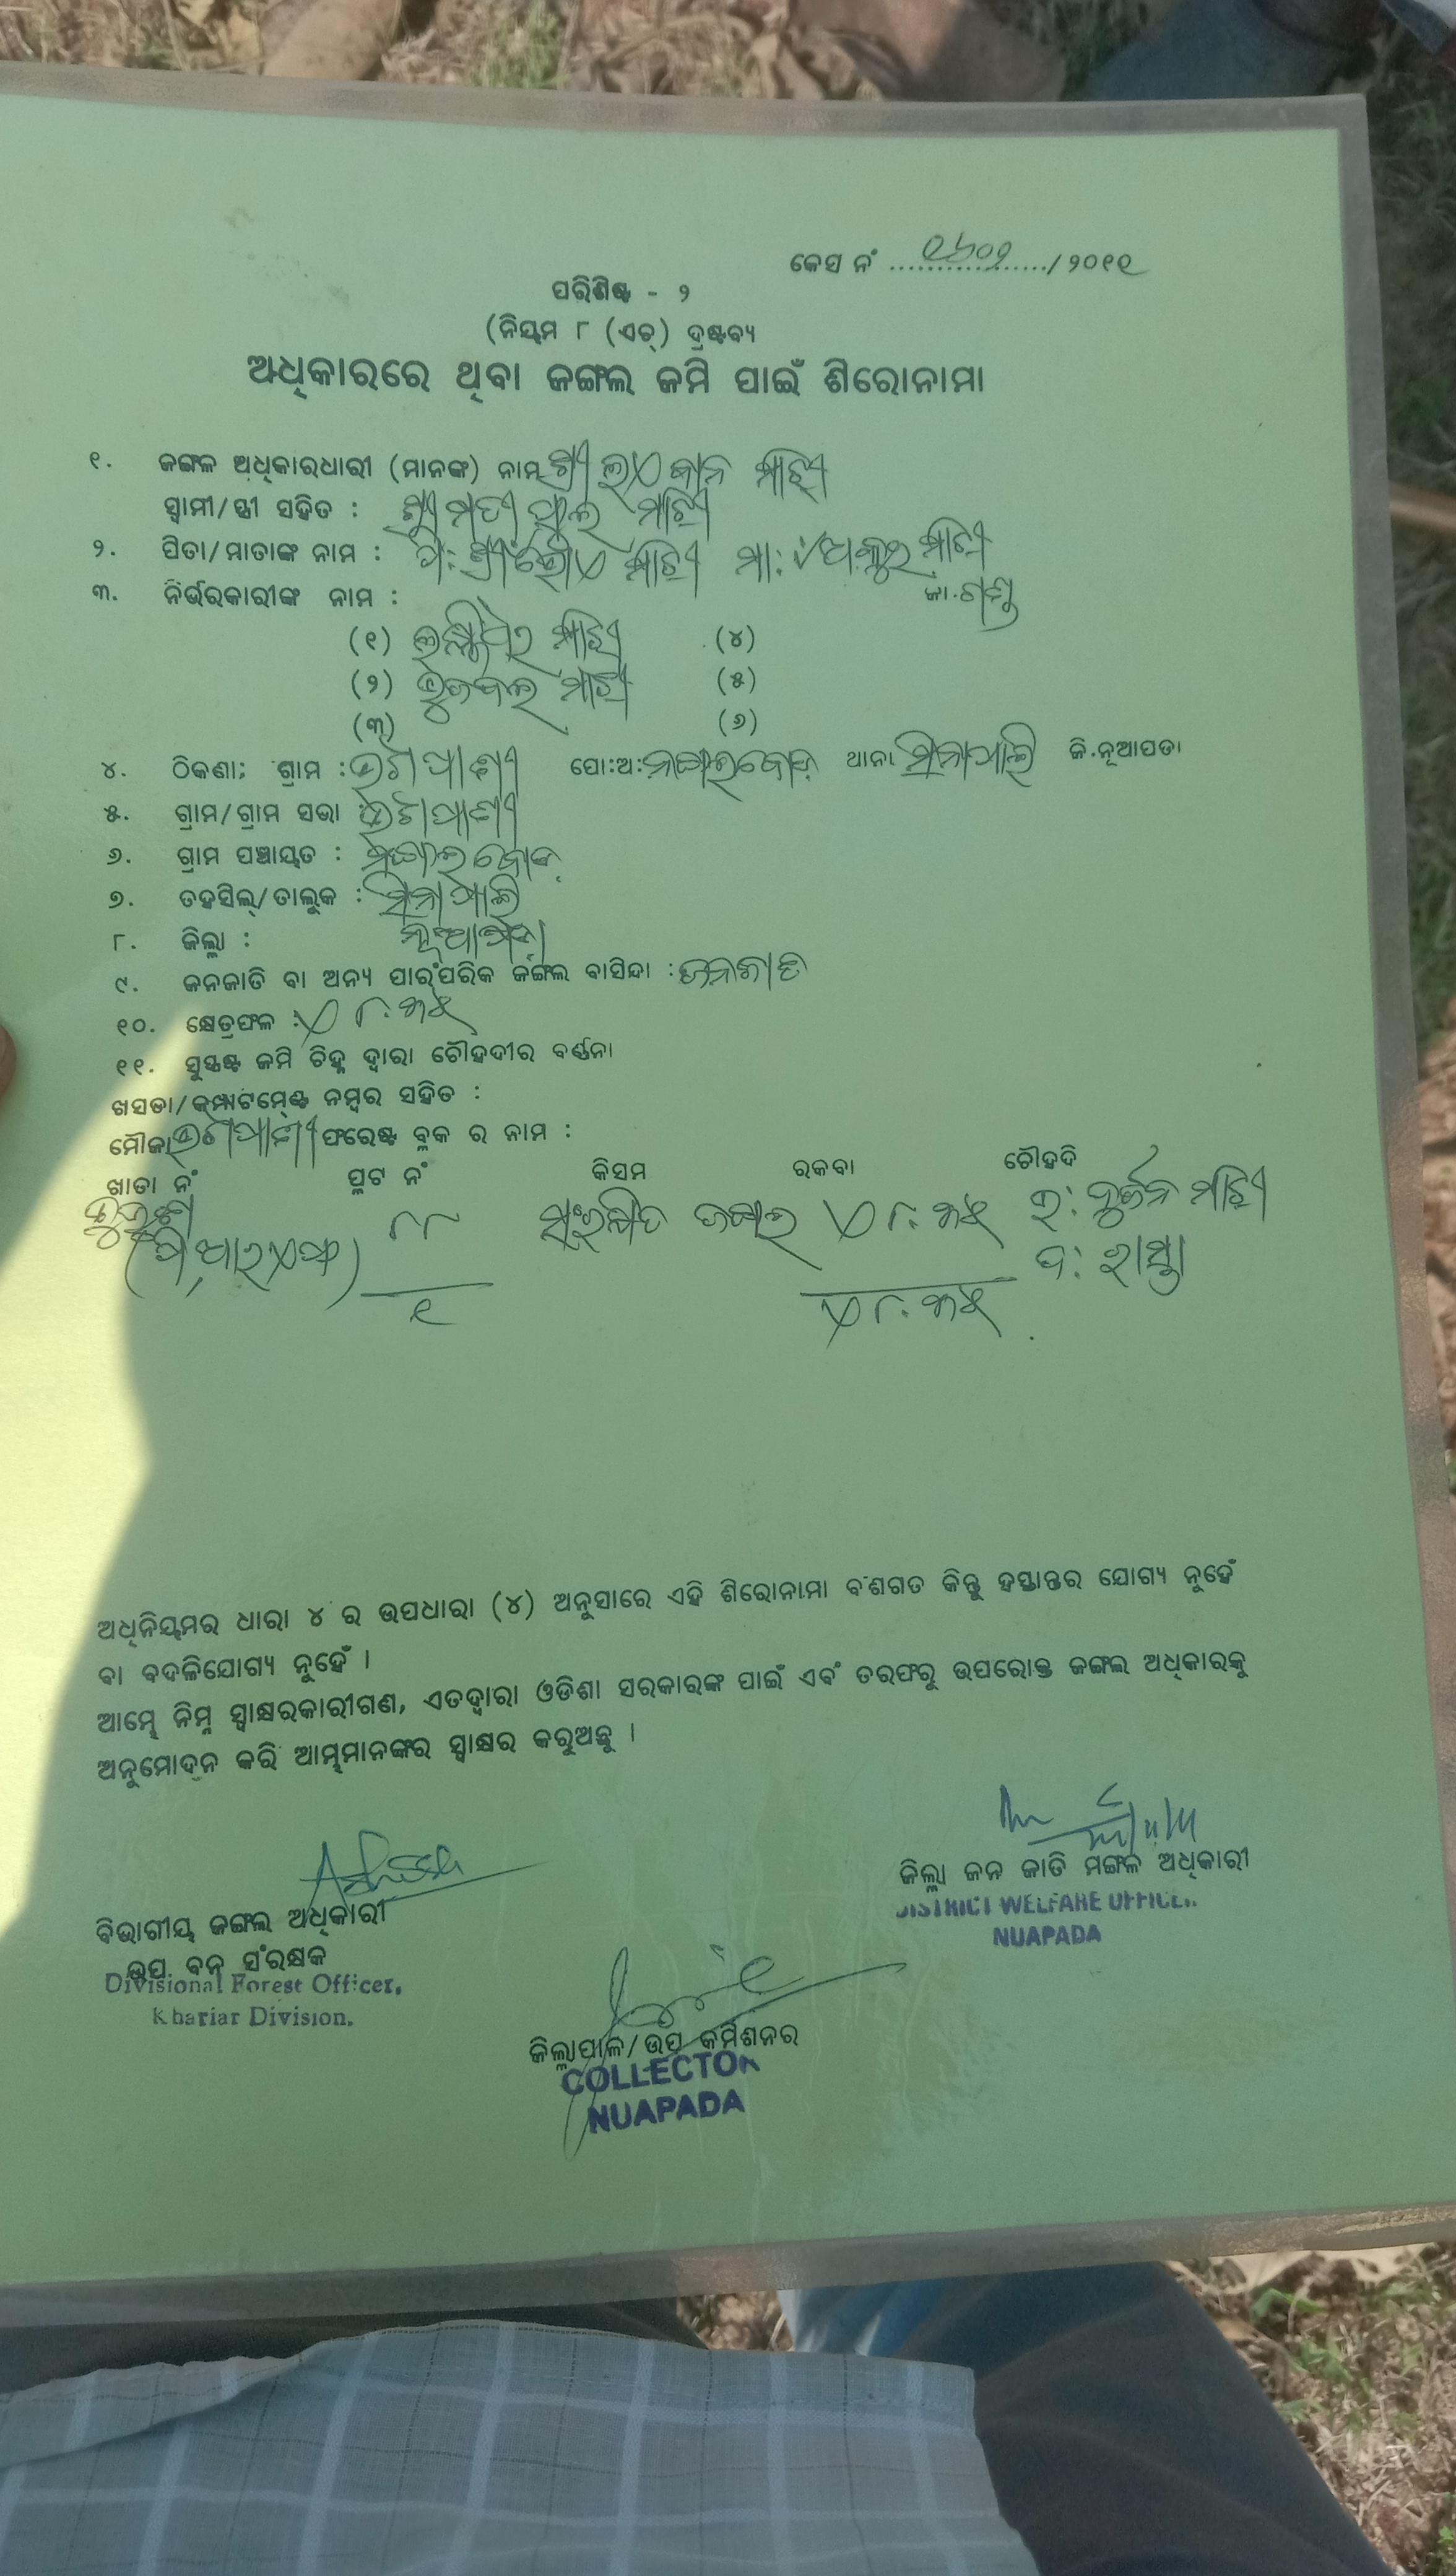 କେସ ନଂ ................/୨୦୧୧
ପରିଶିଷ୍ଟ - ୨
(ନିୟମ ୮ (ଏଚ୍) ଦ୍ରଷ୍ଟବ୍ୟ
ଅଧିକାରରେ ଥିବା ଜଙ୍ଗଲ ଜମି ପାଇଁ ଶିରୋନାମା
୧. ଜଙ୍ଗଳ ଅଧିକାରଧାରୀ (ମାନଙ୍କ) ନାମ ଶ୍ରୀ ମାଝୀ
ସ୍ୱାମୀ/ସ୍ତ୍ରୀ ସହିତ : ଶ୍ରୀମତୀ ଫୁଲ ମାଝୀ
୨. ପିତା/ମାତାଙ୍କ ନାମ : ପି: ମାଝୀ ମା: ମାଝୀ
ଜା. ଗଣ୍ଡ
୩. ନିର୍ଭରକାରୀଙ୍କ ନାମ :
(୧) ମାଝୀ (୪)
(୨) ଭୁଜବଲ ମାଝୀ (୫)
(୩) (୬)
୪. ଠିକଣା; ଗ୍ରାମ : ଭଟାପାଣୀ ପୋ:ଅ: ଥାନା ସିନାପାଲି ଜି.ନୂଆପଡା
୫. ଗ୍ରାମ/ଗ୍ରାମ ସଭା : ଭଟାପାଣୀ
୬. ଗ୍ରାମ ପଞ୍ଚାୟତ :
୭. ତହସିଲ୍/ତାଲୁକ : ସିନାପାଲି
୮. ଜିଲ୍ଲା : ନୂଆପଡା
୯. ଜନଜାତି ବା ଅନ୍ୟ ପାରଂପରିକ ଜଙ୍ଗଲ ବାସିନ୍ଦା : ଜନଜାତି
୧୦. କ୍ଷେତ୍ରଫଳ : ଏ ୮.୩୫
୧୧. ସୁସ୍ପଷ୍ଟ ଜମି ଚିହ୍ନ ଦ୍ୱାରା ଚୌହଦୀର ବର୍ଣ୍ଣନା
ଖସଡା/କମ୍ପାଟମେଣ୍ଟ ନମ୍ବର ସହିତ :
ମୌଜା ଭଟାପାଣୀ ଫରେଷ୍ଟ ବ୍ଳକ ର ନାମ :
ଖାତା ନଂ ପ୍ଳଟ ନଂ କିସମ ରକବା ଚୌହଦି
୮୮ ସଂରକ୍ଷିତ ଜଙ୍ଗଲ ଏ ୮.୩୫ ଉ: ଦୁର୍ଜନ ମାଝୀ
(ପି,ଆର,ଏଫ) ଦ: ରାସ୍ତା
୧ ଏ ୮.୩୫
ଅଧିନିୟମର ଧାରା ୪ ର ଉପଧାରା (୪) ଅନୁସାରେ ଏହି ଶିରୋନାମା ବଂଶଗତ କିନ୍ତୁ ହସ୍ତାନ୍ତର ଯୋଗ୍ୟ ନୁହେଁ
ବା ବଦଳିଯୋଗ୍ୟ ନୁହେଁ ।
ଆମ୍ଭେ ନିମ୍ନ ସ୍ୱାକ୍ଷରକାରୀଗଣ, ଏତଦ୍ୱାରା ଓଡିଶା ସରକାରଙ୍କ ପାଇଁ ଏବଂ ତରଫରୁ ଉପରୋକ୍ତ ଜଙ୍ଗଲ ଅଧିକାରକୁ
ଅନୁମୋଦନ କରି ଆମ୍ଭମାନଙ୍କର ସ୍ୱାକ୍ଷର କରୁଅଛୁ ।
ଜିଲ୍ଲା ଜନ ଜାତି ମଙ୍ଗଳ ଅଧିକାରୀ
DISTRICT WELFARE OFFICER
NUAPADA
ବିଭାଗୀୟ ଜଙ୍ଗଲ ଅଧିକାରୀ
ଉପ ବନ ସଂରକ୍ଷକ
Divisional Forest Officer,
Khariar Division.
ଜିଲ୍ଲାପାଳ/ଉପ କମିଶନର
COLLECTOR
NUAPADA